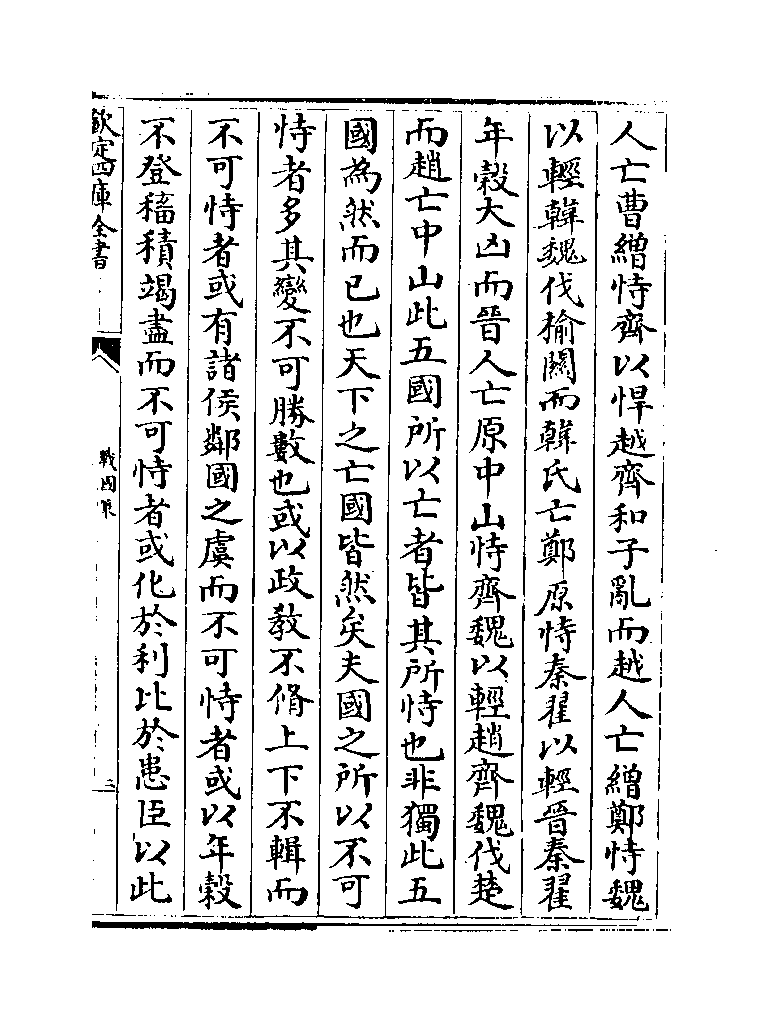 人亡曹繒恃齊以悍越齊和子亂而越人亡繒鄭恃魏
以輕韓魏伐榆關而韓氏亡鄭原恃秦翟以輕晉秦翟
年穀大凶而晉人亡原中山恃齊魏以輕趙齊魏伐楚
而趙亡中山此五國所以亡者皆其所恃也非獨此五
國為然而已也天下之亡國皆然矣夫國之所以不可
恃者多其變不可勝數也或以政教不脩上下不輯而
不可恃者或有諸侯鄰國之虞而不可恃者或以年穀
不登稸積竭盡而不可恃者或化於利比於患臣以此
欽定四庫全書
戰國策
三